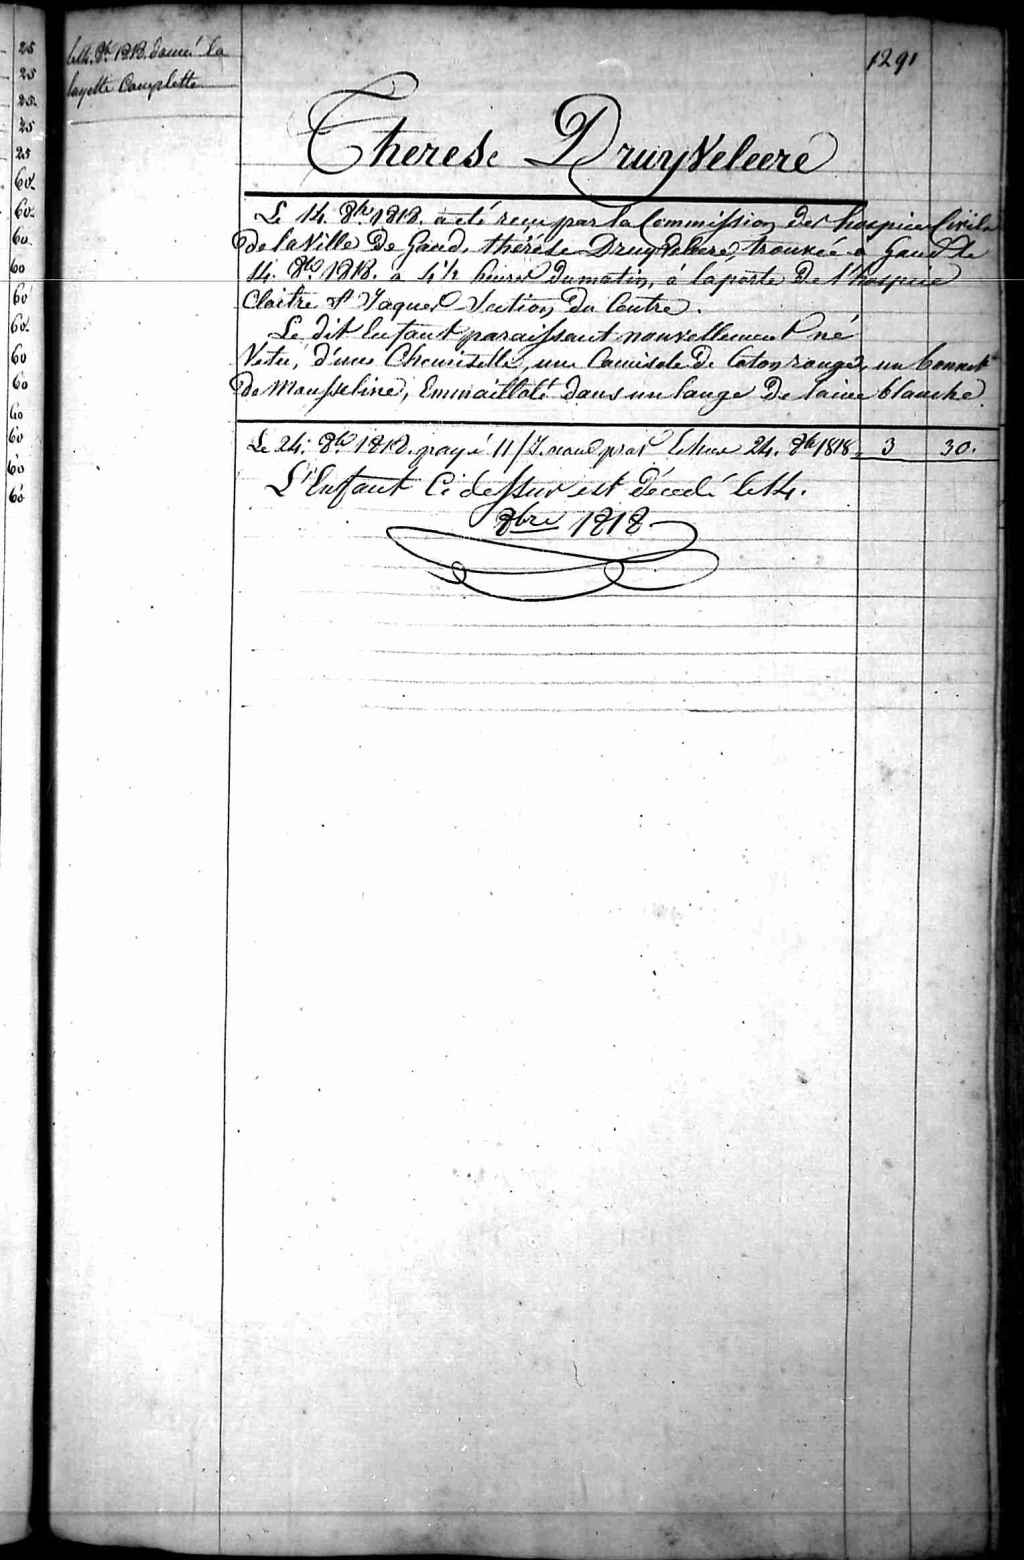 25
25
25.
25
25
60.
60.
60
60
60
60.
60
60
60
60
60
60
le 14. 8bre 1818. donné la
layette Complette
1291
Therese Druyveleere
Le 14. 8bre 1818. a été reçu par la Commission des hospices Civils
de la Ville De Gand, thérèse Druyveleere, trouvée a Gand le
14. 8bre 1818. a 4½ heures du matin, á la porte De l'hospice
Cloitre St Jaques Section du Centre.
Le dit Enfant paraissant nouvellement né
Vetu, d'une Chemisette, une Camisole De Coton rouge, un bonnet
de Mousseline, Emmailloté dans un lange De laine blanche.
Le 24. 8bre 1818. payé 11/ 24. 8bre 1818. 3 30.
L'Enfant Ci dessus est Décedé le 14.
8bre 1818